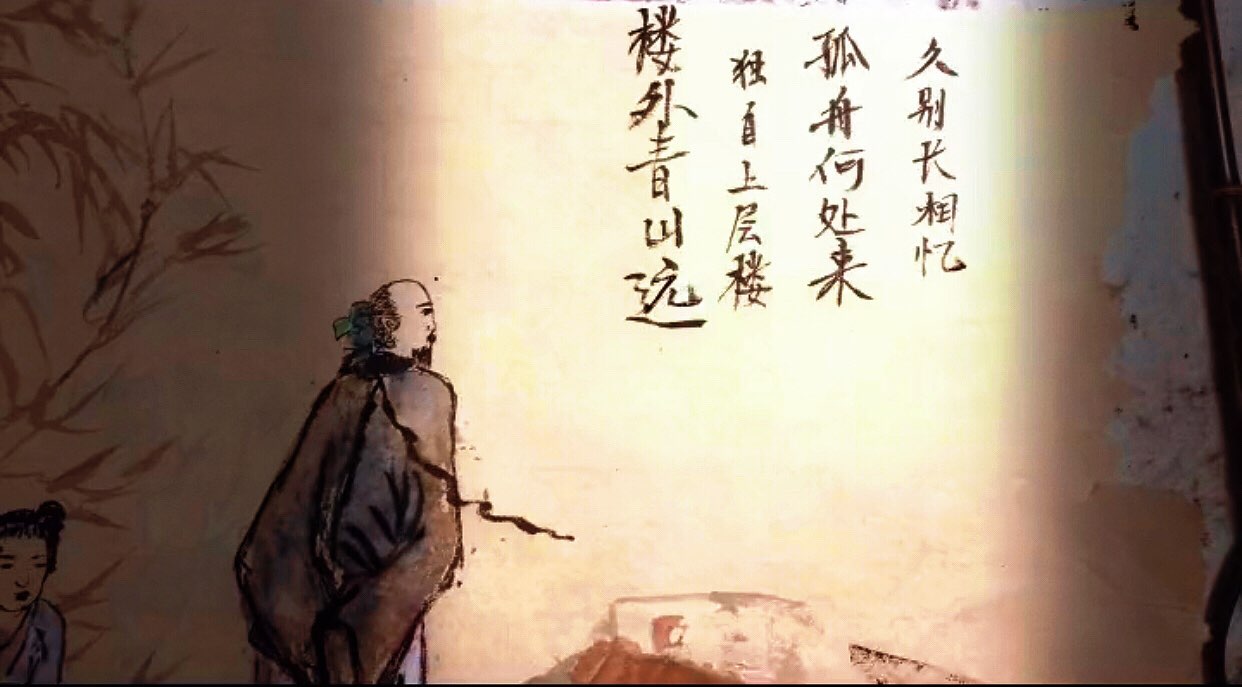 久别长相忆
孤舟何处来
独自上层楼
楼外青山远